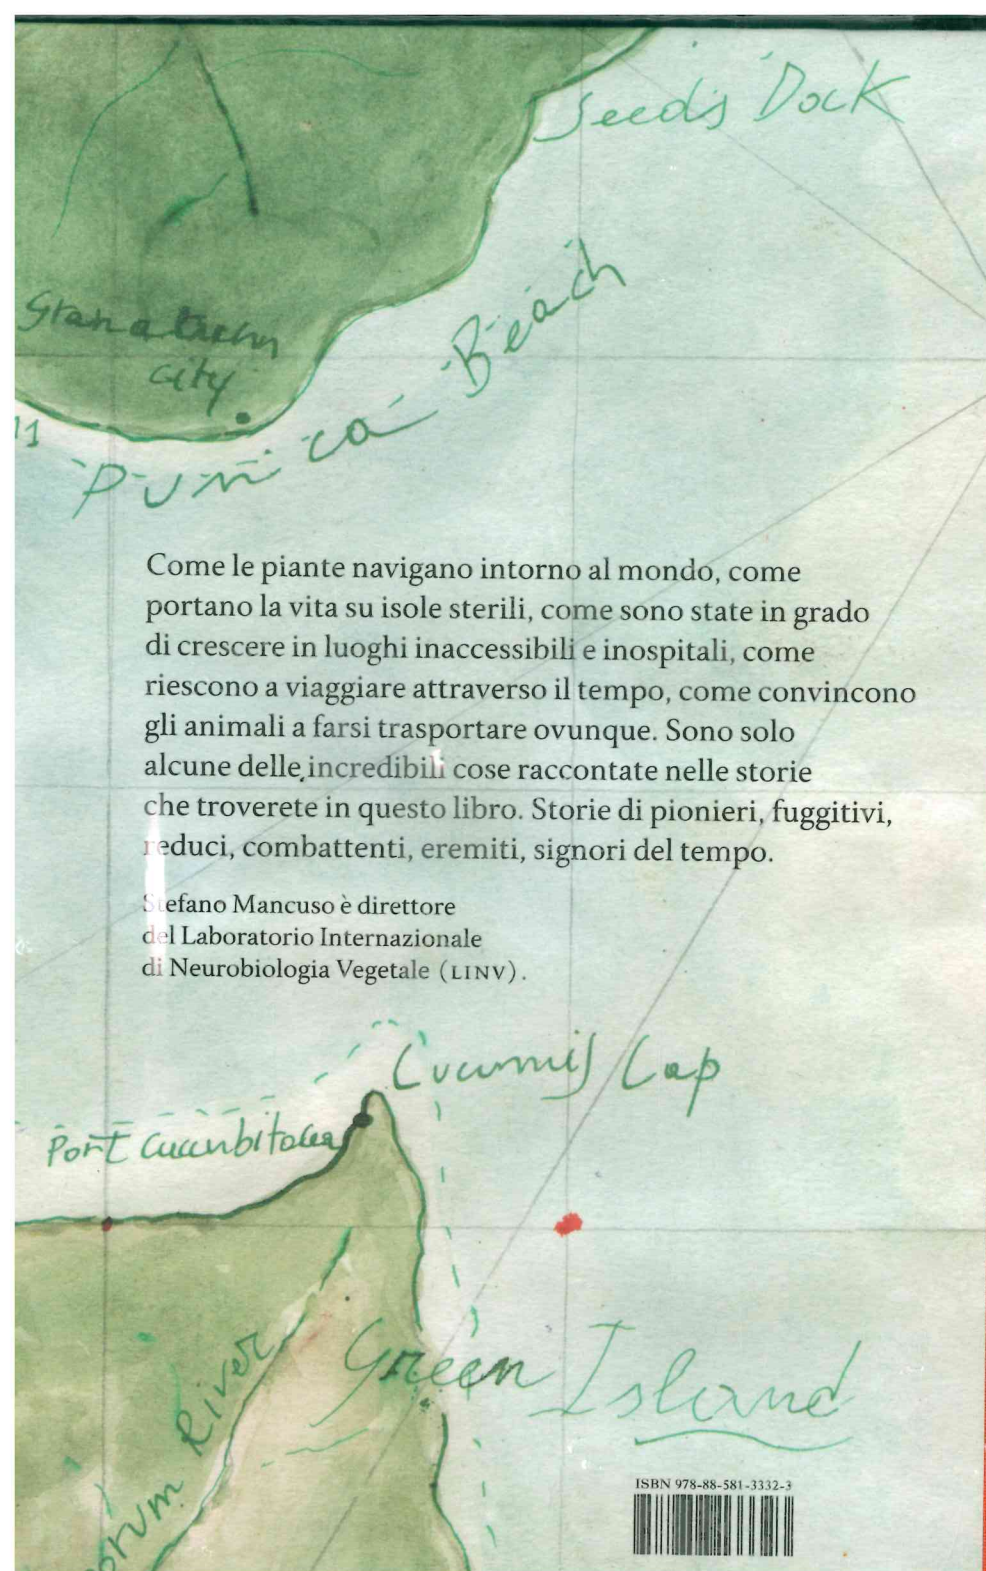 Seeds Dock
Granatum
city
Punica Beach
Come le piante navigano intorno al mondo, come
portano la vita su isole sterili, come sono state in grado
di crescere in luoghi inaccessibili e inospitali, come
riescono a viaggiare attraverso il tempo, come convincono
gli animali a farsi trasportare ovunque. Sono solo
alcune delle incredibili cose raccontate nelle storie
che troverete in questo libro. Storie di pionieri, fuggitivi,
reduci, combattenti, eremiti, signori del tempo.
Stefano Mancuso è direttore
del Laboratorio Internazionale
di Neurobiologia Vegetale (LINV).
Cucumis Cap
Port Cucurbitacea
Green Island
River
ISBN 978-88-581-3332-3